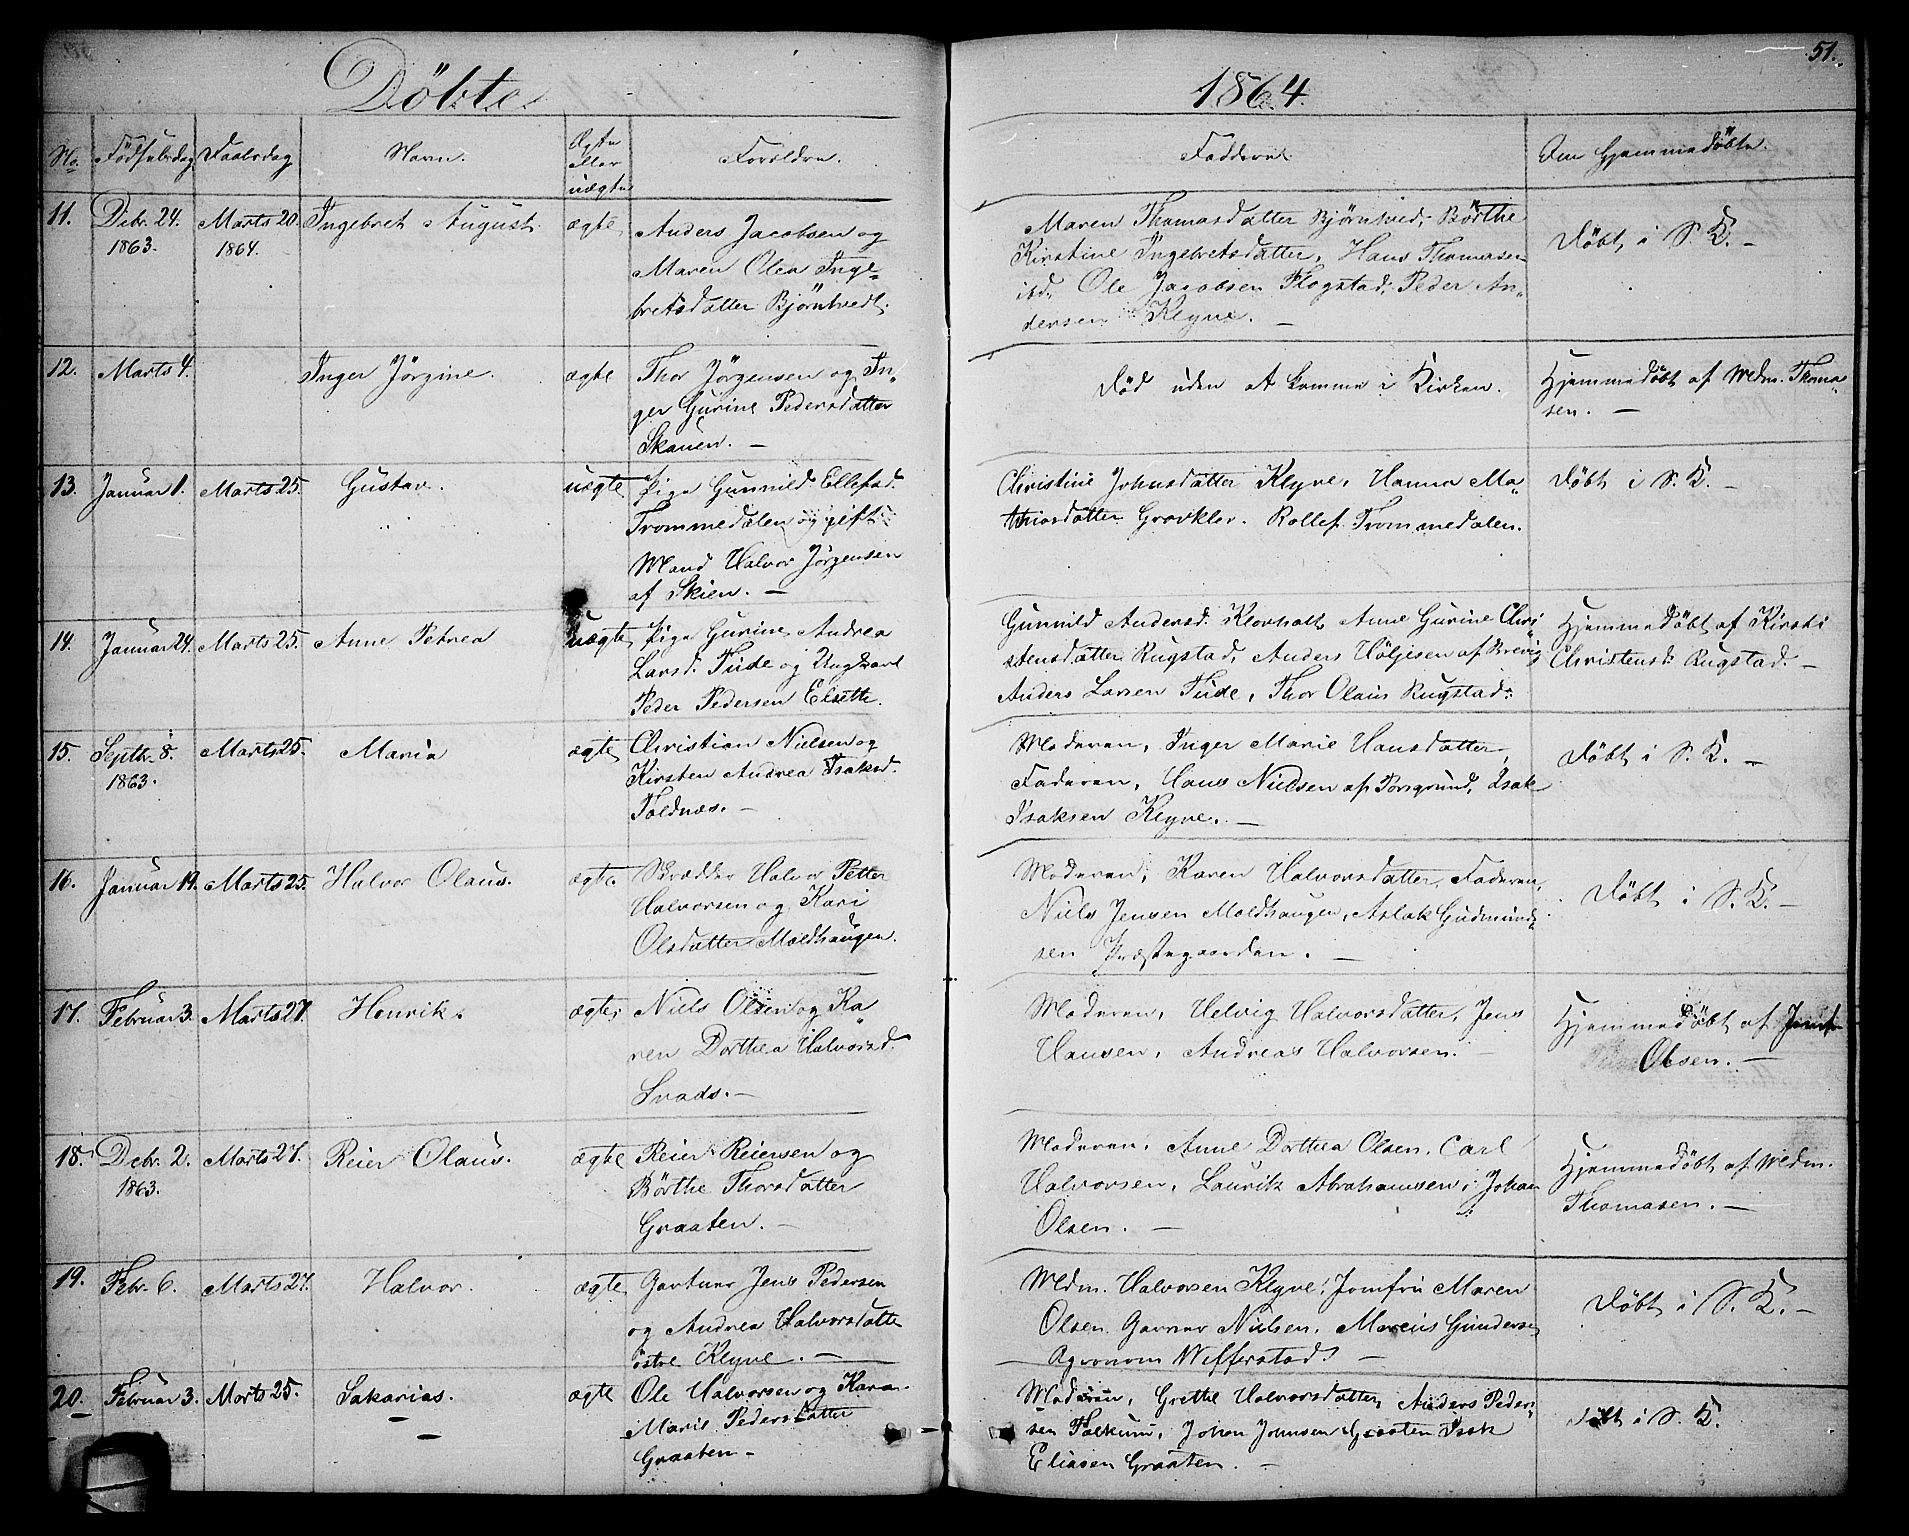 Döbte
1864.
51.
No. Födselsdag Daabsdag Navn. Ægte eller uægte Forældre. Faddere. Om Hjemmedöbte.
11. Debr. 24. 1863. Marts 20. 1864. Ingebret August ægte
Anders Jacobsen og
Maren Olea Inge-
bretsdatter Björntvedt.
Maren Thomasdatter Björntved, Börthe
Kirstine Ingebretsdatter, Hans Thomasen
ibd. Ole Jacobsen Flogstad, Peder An-
dersen Klyve. —
Döbt i S. K. —
12. Marts 4. Inger Jörgine. ægte
Thor Jörgensen og In-
ger Gurine Pedersdatter
Skauen. —
Död uden at komme i Kirken.
Hjemmedöbt af Mdm. Thoma-
sen. —
13. Januar 1. Marts 25. Gustav. uægte
Pige Gunnild Ellefsd.
Trommedalen og gift
Mand Halvor Jörgensen
af Skien. —
Christine Johnsdatter Klyve, Hanna Ma-
thiasdatter Gravklev. Rollef Trommedalen.
Döbt i S. K. —
14. Januar 24. Marts 25. Anne Petrea uægte
Pige Gurine Andrea
Larsd. Fude og Ungkarl
Peder Pedersen Elseth.
Gunnild Andersd. Klovholt, Anne Gurine Chri-
stensdatter Rugstad, Anders Höljesen af Brevig
Anders Larsen Fude, Thor Olaus Rugstad.
Hjemmedöbt af Kirsti
Christensd. Rugstad. —
15. Septb. 8. 1863. Marts 25. Maria ægte
Christian Nielsen og
Kirsten Andrea Isaksd.
Foldnæs. —
Moderen, Inger Marie Hansdatter,
Faderen, Hans Nielsen af Porsgrund, Isak
Isaksen Klyve. —
Döbt i S. K. —
16. Januar 19. Marts 25. Halvor Olaus. ægte
Skrædder Halvor Petter
Halvorsen og Kari
Olsdatter Moldhaugen.
Moderen, Karen Halvorsdatter, Faderen,
Niels Jensen Moldhaugen, Aslak Gudmund-
sen Præstegaarden. —
Döbt i S. K. —
17. Februar 3. Marts 27. Henrik. ægte
Niels Olsen og Ka-
ren Dorthea Halvorsd.
Svads. —
Moderen, Helvig Halvorsdatter, Jens
Hansen, Andreas Halvorsen. —
Hjemmedöbt af Jomfr
Olsen. —
18. Debr. 2. 1863. Marts 27. Reier Olaus. ægte
Reier Reiersen og
Börthe Thorsdatter
Graaten. —
Moderen, Anne Dorthea Olsen, Carl
Halvorsen, Laurik Abrahamsen, Johan
Olsen. —
Hjemmedöbt af Mdm.
Thomasen. —
19. Febr. 6. Marts 27. Halvor. ægte
Gartner Jens Pedersen
og Andrea Halvorsdatte
östre Klyve. —
Mdm. Halvorsen Klyve, Jomfru Maren
Olsen. Garver Nielsen, Marcus Gunderse
Agronom Wefferstad. —
Döbt i S. K. —
20. Februar 3. Marts 25. Sakarias. ægte
Ole Halvorsen og Karen
Marie Pedersdatter
Graaten —
Moderen, Grethe Halvorsdatter, Anders Peder-
sen Falkum, Johan Johnsen Graaten Isak
Eliasen Graaten. —
Döbt i S. K.